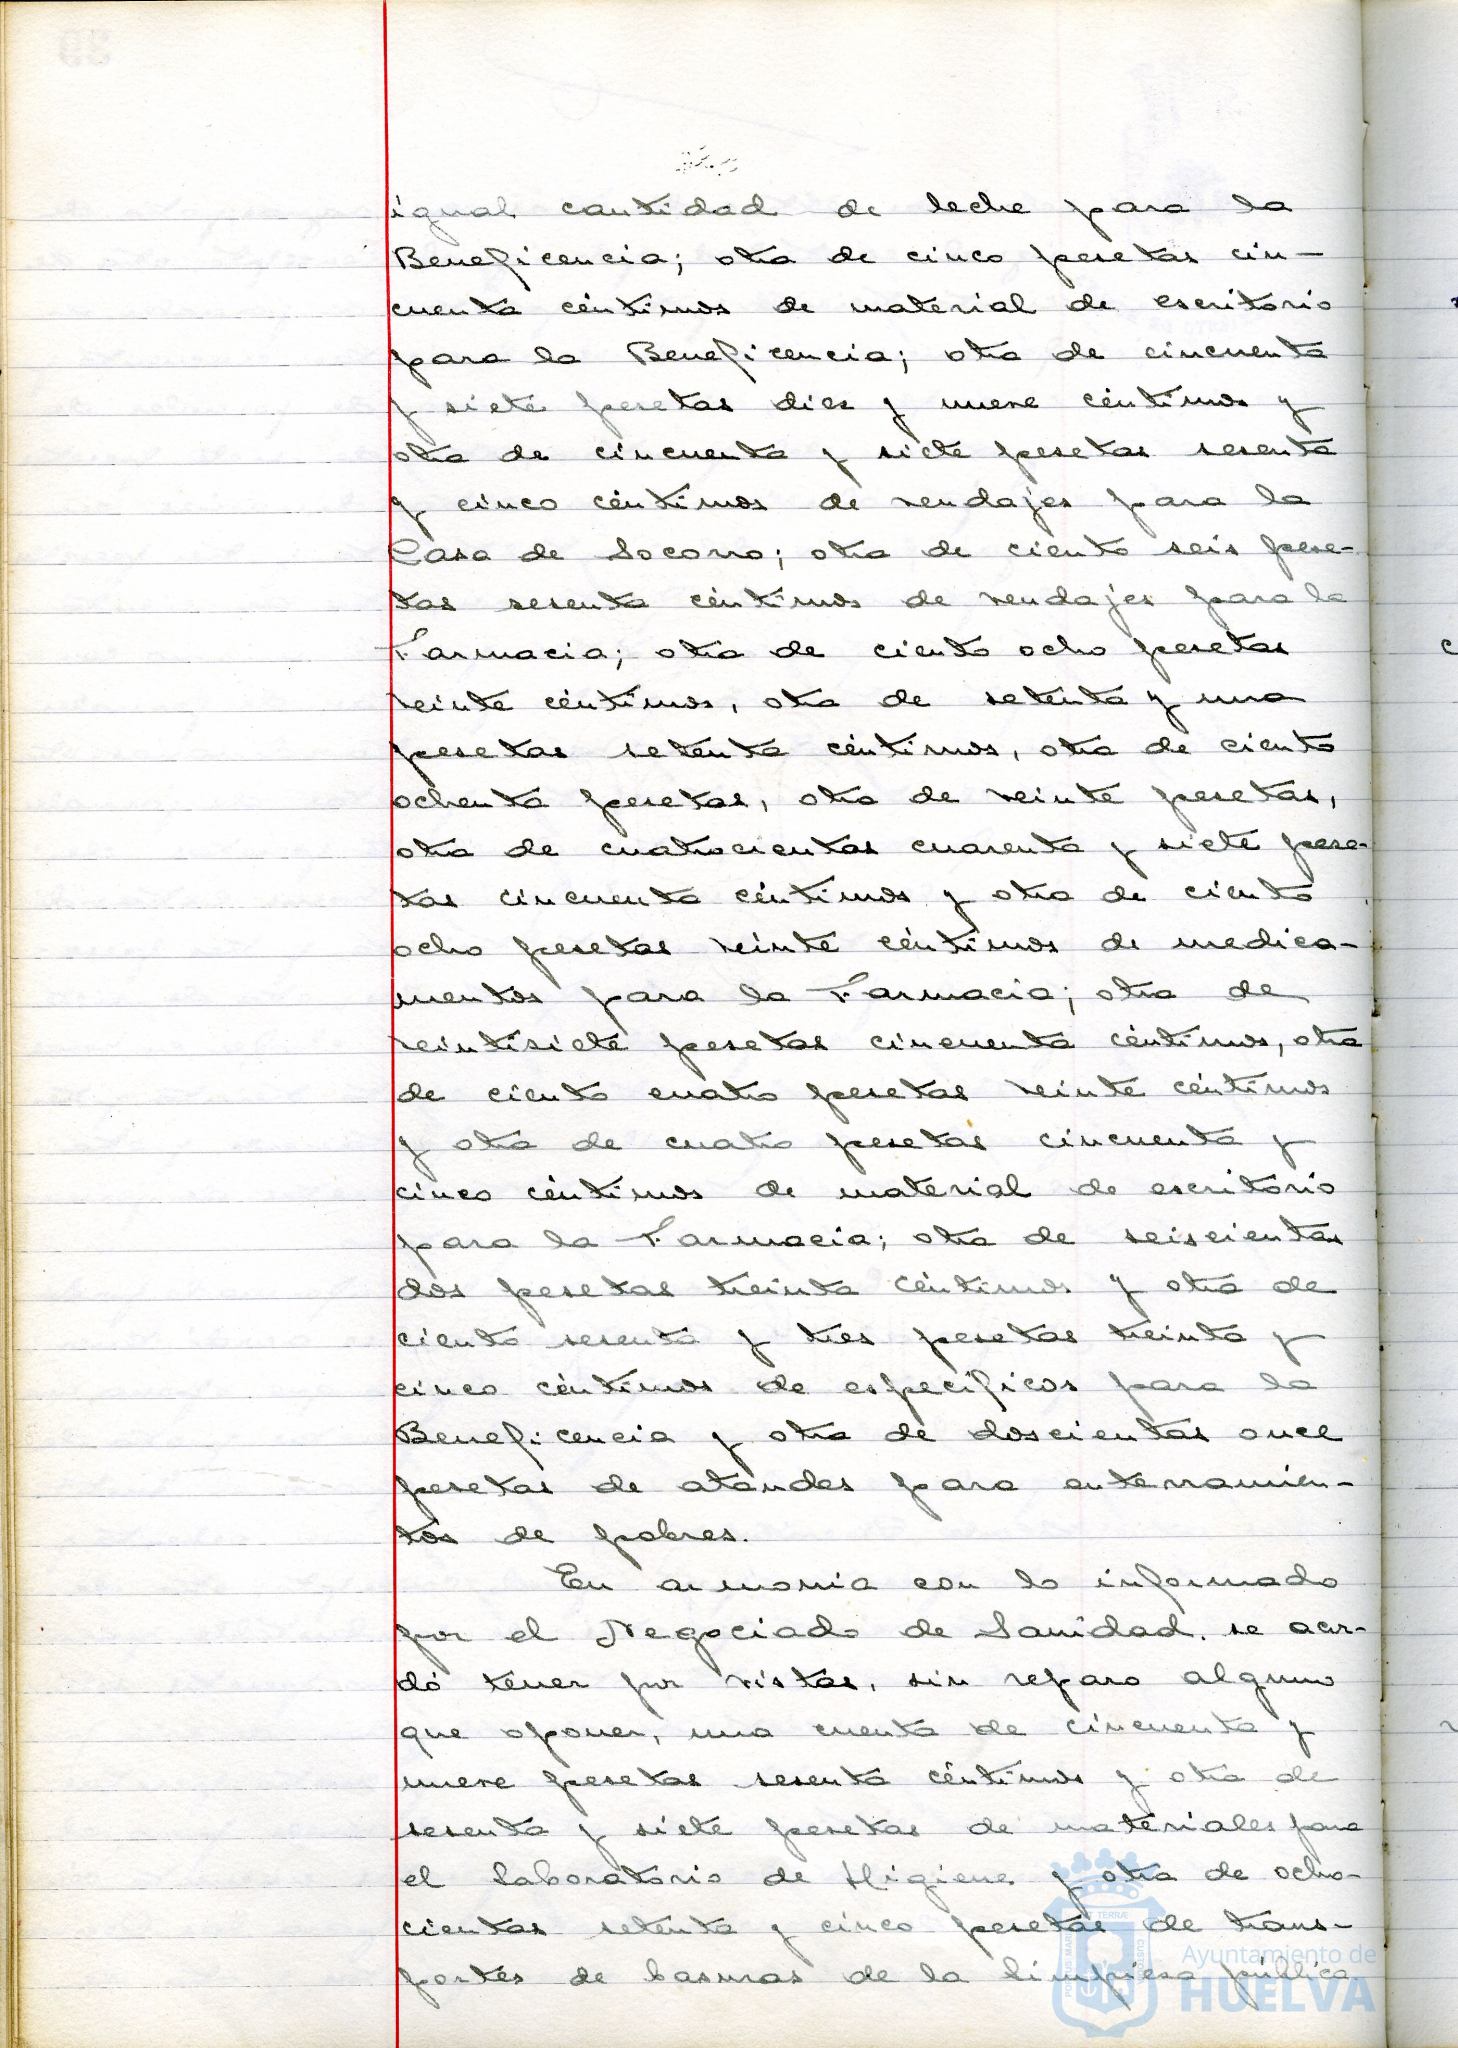 igual cantidad de leche para la
Beneficencia; otra de cinco pesetas cin-
cuenta céntimos de material de escritorio
para la Beneficencia; otra de cincuenta
y siete pesetas diez y nueve céntimos y
otra de cincuenta y siete pesetas sesenta
y cinco céntimos de vendajes para la
Casa de Socorro; otra de ciento seis pese-
tas sesenta céntimos de vendajes para la
Farmacia; otra de ciento ocho pesetas
veinte céntimos, otra de setenta y una
pesetas setenta céntimos, otra de ciento
ochenta pesetas, otra de veinte pesetas,
otra de cuatrocientas cuarenta y siete pese-
tas cincuenta céntimos y otra de ciento
ocho pesetas veinte céntimos de medica-
mentos para la Farmacia; otra de
veintisiete pesetas cincuenta céntimos, otra
de ciento cuatro pesetas veinte céntimos
y otra de cuatro pesetas cincuenta y
cinco céntimos de material de escritorio
para la Farmacia; otra de seiscientas
dos pesetas treinta céntimos y otra de
ciento sesenta y tres pesetas treinta y
cinco céntimos de específicos para la
Beneficencia y otra de doscientas once
pesetas de ataudes para enterramien-
tos de pobres.
En armonia con lo informado
por el Negociado de Sanidad, se acor-
dó tener por vistas, sin reparo alguno
que oponer, una cuenta de cincuenta y
nueve pesetas sesenta céntimos y otra de
sesenta y siete pesetas de materiales para
el Laboratorio de Higiene y otra de ocho-
cientas setenta y cinco pesetas de trans-
portes de basuras de la limpieza pública
Ayuntamiento de
HUELVA